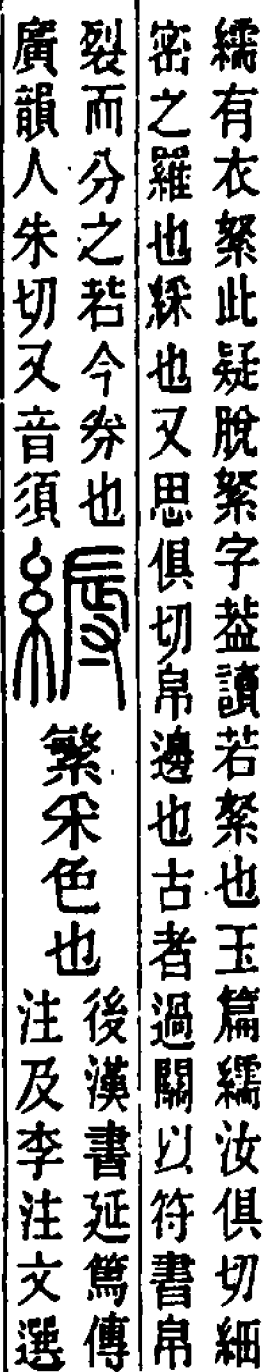 繻有衣絮此疑脫絮字葢讀若絮也玉篇繻汝俱切細
密之羅也綵也又思俱切帛邊也古者過關以符書帛
裂而分之若今券也
廣韻人朱切又音須
縟
繁采色也
後漢書延篤傳
注及李注文選